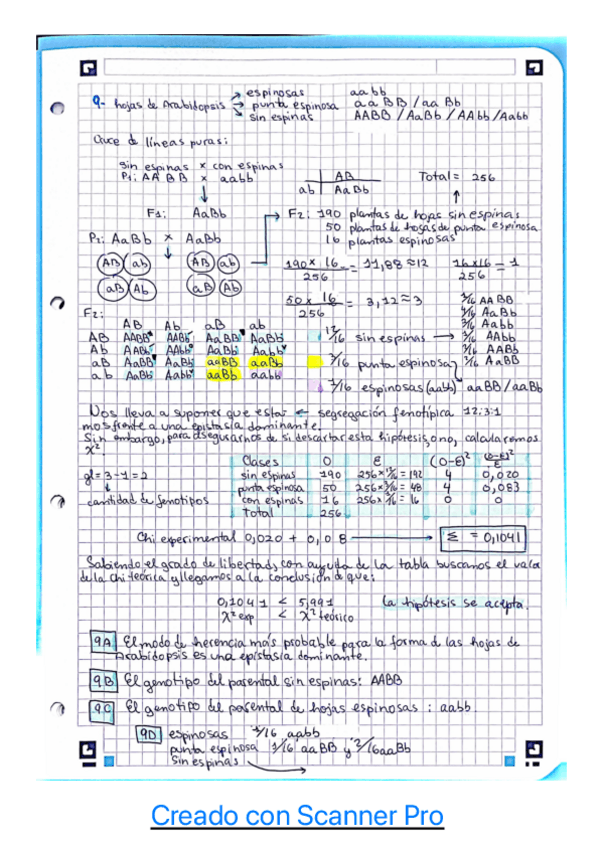 9- hojas de Arabidopsis → espinosas aabb
→ punta espinosa aaBB / aaBb
→ sin espinas AABB / AaBb / AAbb / Aabb
Cruce de líneas puras:
sin espinas x con espinas
P1: AABB x aabb
AB
ab AaBb
Total = 256
F1: AaBb
F2: 190 plantas de hojas sin espinas
50 plantas de hojas de punta espinosa
16 plantas espinosas
P1: AaBb x AaBb
AB ab AB ab
aB Ab aB Ab
190 x 16 / 256 = 11,88 ≈ 12
16 x 16 / 256 = 1
50 x 16 / 256 = 3,12 ≈ 3
F2:
AB Ab aB ab
AB AABB AABb AaBB AaBb
Ab AABb AAbb AaBb Aabb
aB AaBB AaBb aaBB aaBb
ab AaBb Aabb aaBb aabb
12/16 sin espinas →
1/16 AABB
4/16 AaBb
2/16 Aabb
1/16 AAbb
2/16 AABb
2/16 AaBB
3/16 punta espinosa
1/16 espinosas (aabb) aaBB / aaBb
Nos lleva a suponer que estar ← segregación fenotípica 12:3:1
mos frente a una epistasia dominante.
Sin embargo, para asegurarnos de si descartar esta hipótesis, o no, calcularemos
χ².
gl = 3-1 = 2
↓
cantidad de fenotipos
Clases O E (O-E)² (O-E)²/E
sin espinas 190 256 x 12/16 = 192 4 0,020
punta espinosa 50 256 x 3/16 = 48 4 0,083
con espinas 16 256 x 1/16 = 16 0 0
Total 256
Chi experimental 0,020 + 0,08 → Σ = 0,1041
Sabiendo el grado de libertad, con ayuda de la tabla buscamos el valor
de la chi teórica y llegamos a la conclusión de que:
0,1041 < 5,991 La hipótesis se acepta.
χ² exp < χ² teórico
9A El modo de herencia más probable para la forma d las hojas de
Arabidopsis es una epistasia dominante.
9B El genotipo del parental sin espinas: AABB
9C El genotipo del parental de hojas espinosas: aabb.
9D espinosas 1/16 aabb
punta espinosa 1/16 aaBB y 2/16 aaBb
sin espinas →
Creado con Scanner Pro